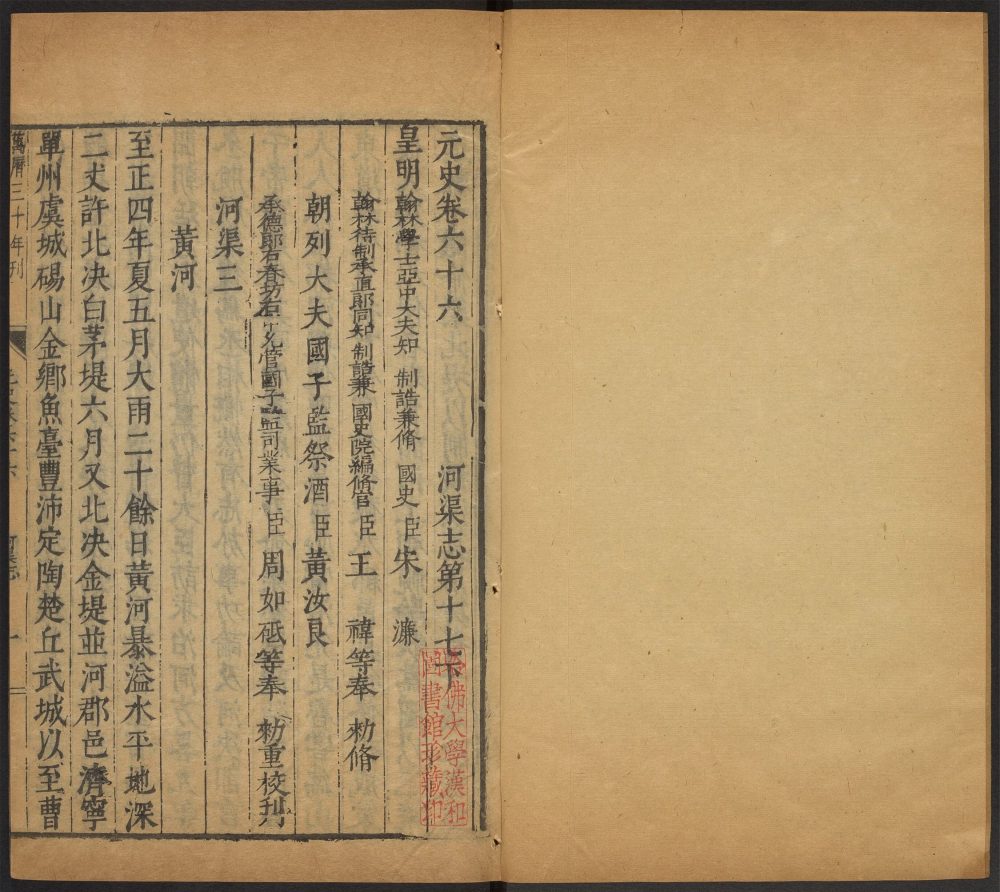 元史卷六十六 河渠志第十七下
皇明翰林學士亞中大夫知 制誥兼脩 國史 臣 宋 濂
翰林待制承直郎同知 制誥兼 國史院編脩官 臣 王 禕等奉 勑脩
朝列大夫國子監祭酒 臣 黃汝良
承德郎右春坊右 管國子監司業事 臣 周如砥等奉 勑重校刊
河渠三
黃河
至正四年夏五月大雨二十餘日黃河暴溢水平地深
二丈許北决白茅堤六月又北决金堤並河郡邑濟寧
單州虞城碭山金鄉魚臺豐沛定陶楚丘武城以至曹
萬曆三十年刊
河渠志
一
哈佛大學漢和
圖書館珍藏印